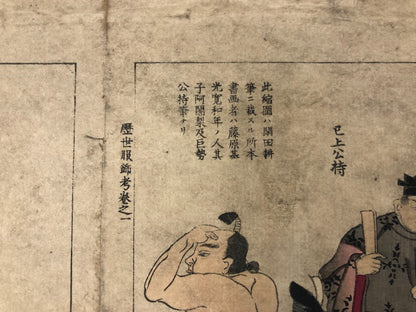 已上公持
此縮圖ハ閑田耕
筆ニ載スル所本
書画者ハ藤原基
光寛和年ノ人其
子阿闍梨及巨勢
公持筆ナリ
歴世服飾考卷之一